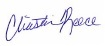 Christin Reece